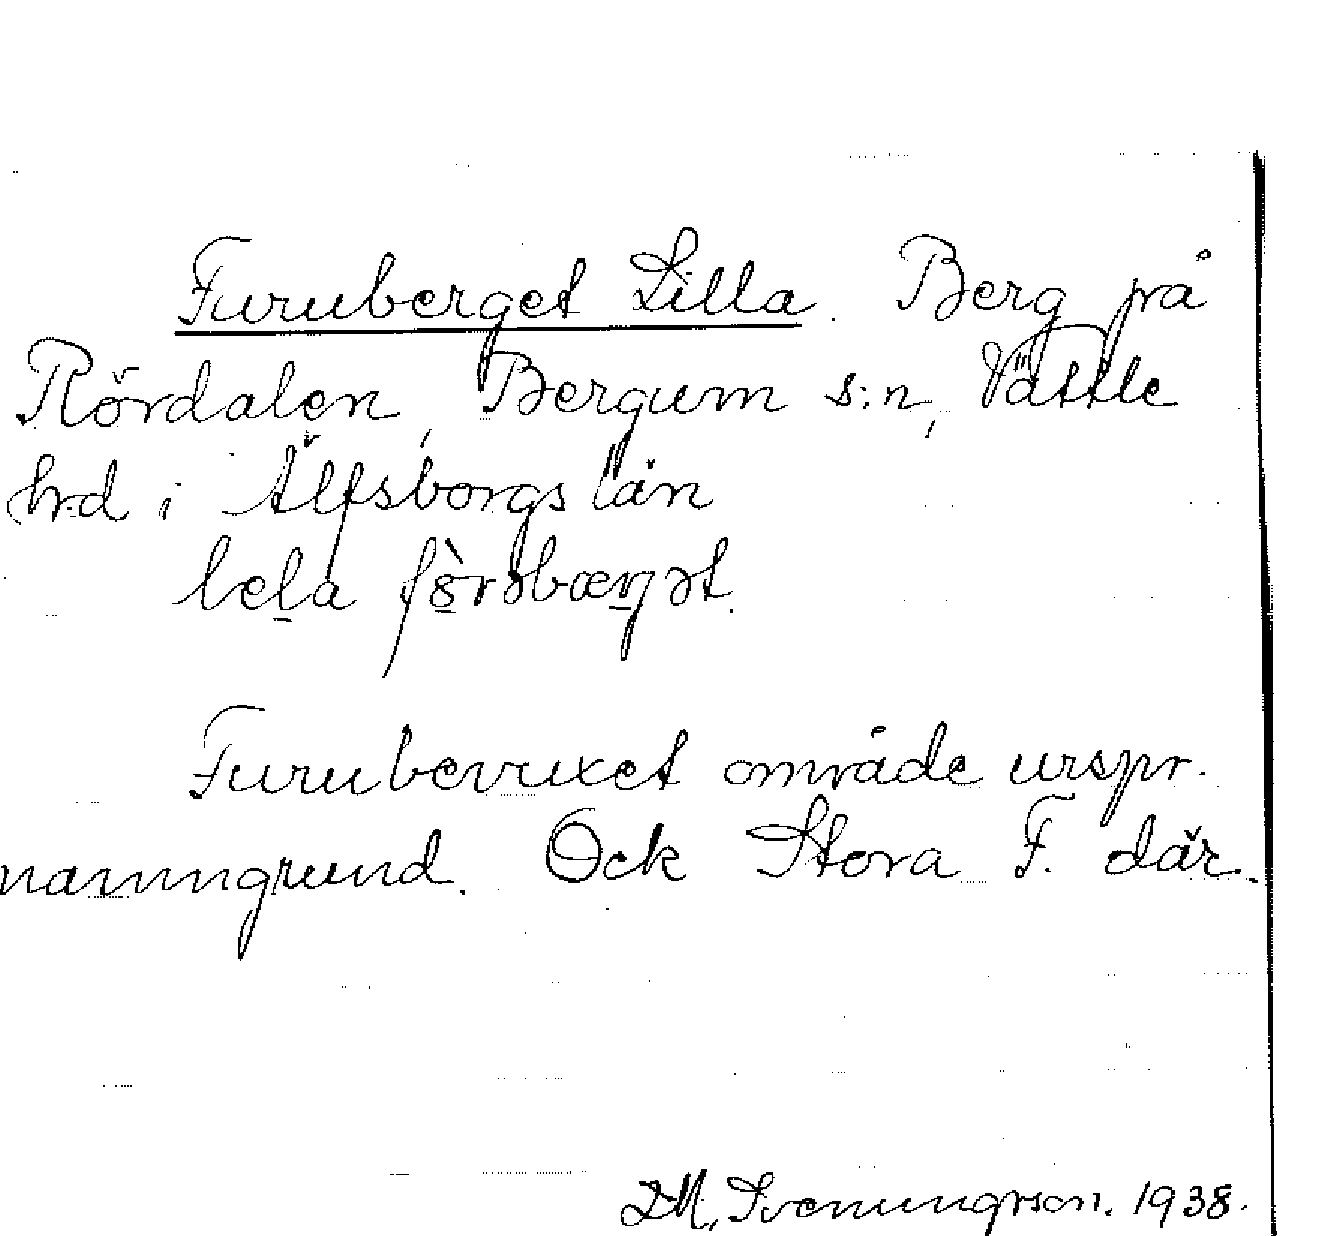 Furuberget Lilla. Berg på
Rördalen, Bergum s:n, Vättle
hrd i Älfsborgs län
Furubevuxet område urspr.
namngrund. Ock Stora F. där.
Svenungsson. 1938.